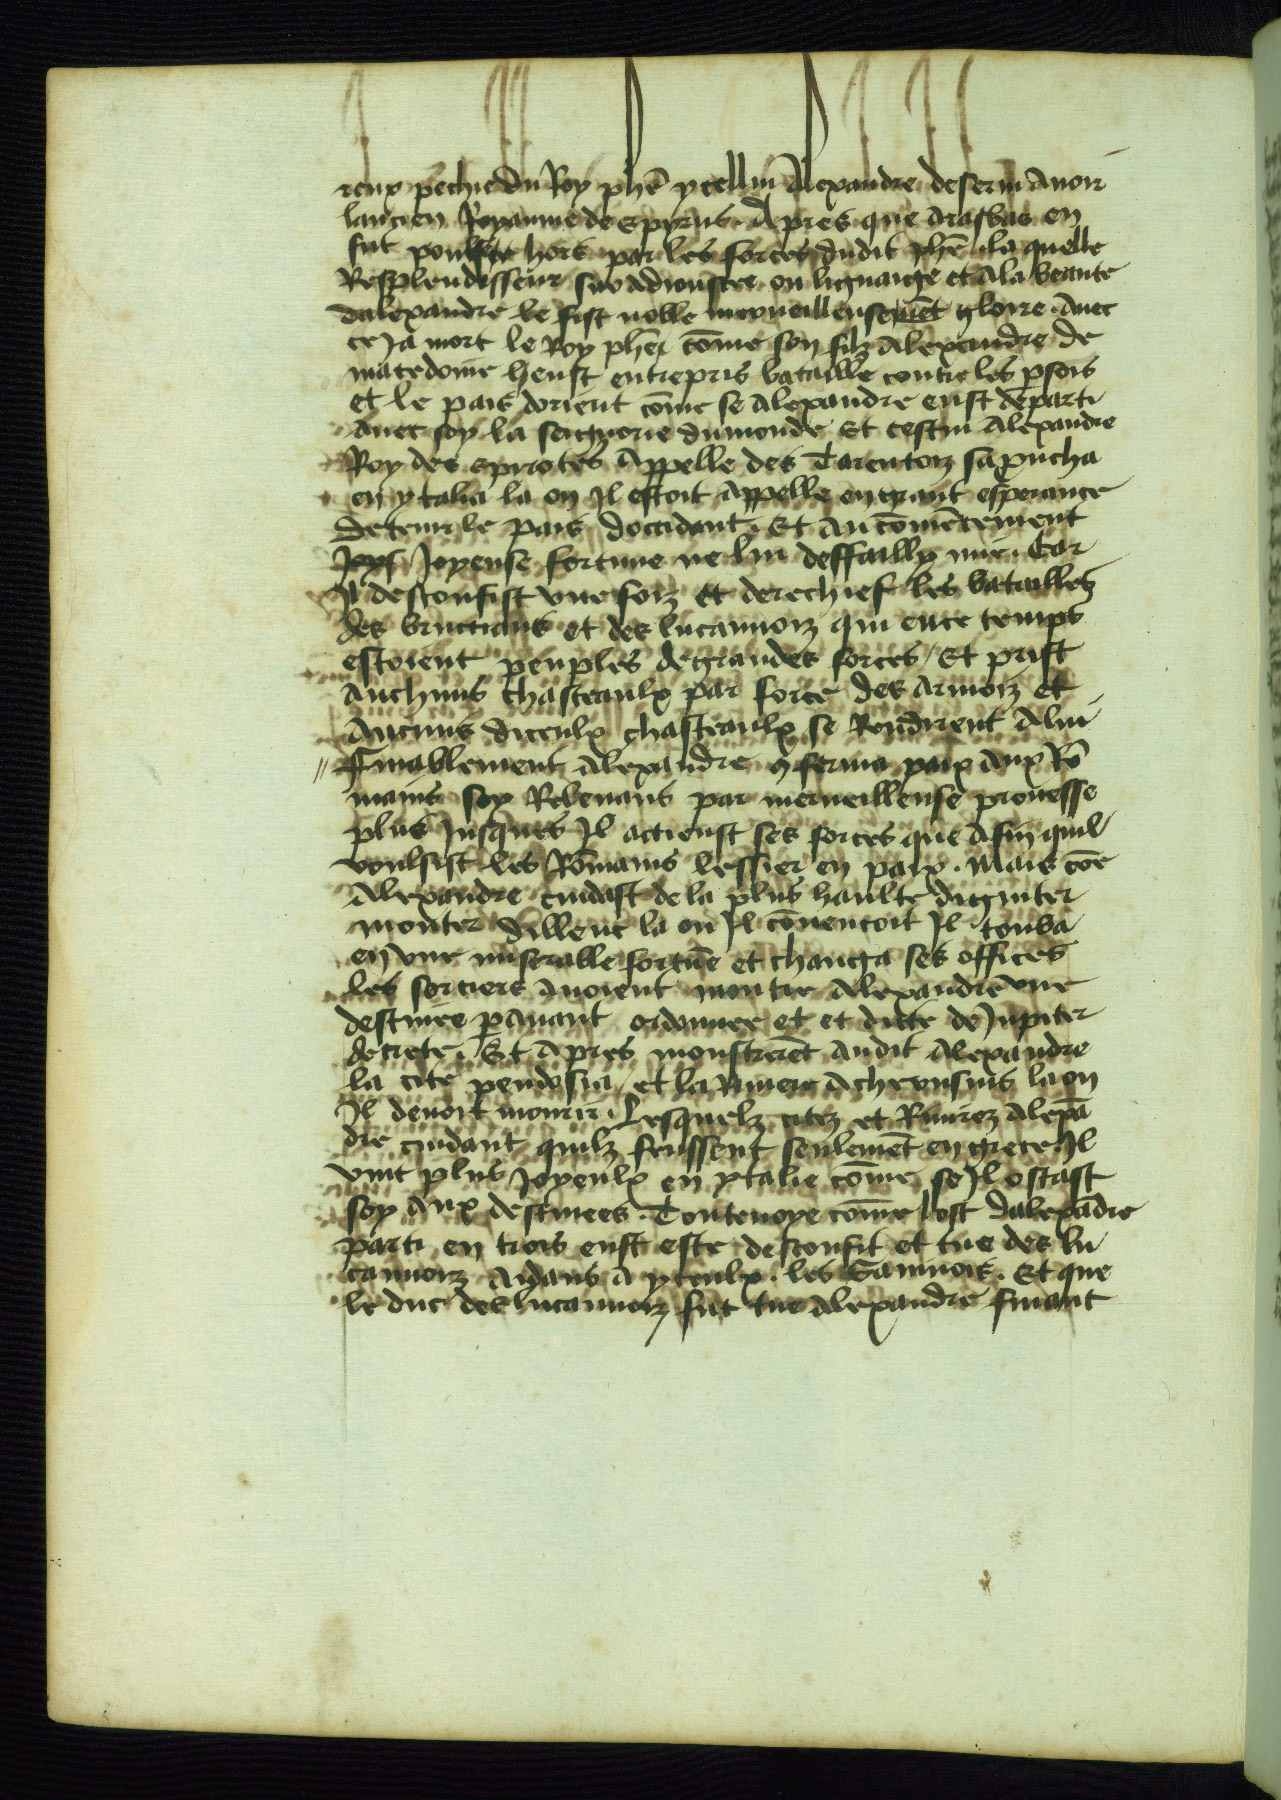 reux pechie du Roy phē ycelluj Alexandre deservi avoir
lancien Royaume de Epyrus. Apres que arasbas en
fut poulsse hors par les forces dudit phē la quelle
Resplendisseur fut adioustee ou lignaige et ala beaute
dalexandre le fist noble merveilleusemēt gloire. Avec
ce Ja mort le Roy phē cōme son filz Alexandre de
macedoine heust entrepris bataille contre les psois
et le pais dorient cōme se Alexandre eust departi
avec soy la seignorie du monde Et cestui Alexandre
Roy des epirotes Appelle des Tarentoiz sapucha
en ytalia la ou Il estoit Appelle en grant esperance
de tenir le pais doccidant. Et au cōmēcement
Joyeuse fortune ne lui deffailly mie. Car
Il desconfist une foiz et derechief les batailles
des bructians et des lucannoiz qui en ce temps
estoient peuples de grandes forces / Et prist
Auchuns chasteaulx par force des armoiz et
Aucuns diceulx chasteaulx se Rendirent A lui
Finablement Alexandre 9ferma paix aux Rō
mains soy Relevans par merveilleuse prouesse
plus Jusques Il actieust ses forces que Afin quil
voulsist les Rōmains lessier en paix. Mais cōe
Alexandre cuidast de la plus haulte digniter
monter dillenc la ou Il cōmencoit Il tomba
en une miserable fortūe et changa ses offices
les sorciers avoient montre Alexandre une
destinee pavant ordonnee et et dicte de Jupiter
decrete. Et Apres monstrerēt audit Alexandre
la cite pendosia / et la Riviere Acherusius la ou
Il devoit mourir. Lesquelz citez et Rivirez Alexā
dre cuidant quilz feussent seulemēt en grece Il
vint plus Joyeulx en ytalie cōme se Il ostast
soy Aux destinees. Toutevoye cōme lost dalexādre
parti en trois eust este desconfit et tue des lu
cannoiz Aidans a yceulx. les Saminois. Et que
le duc des lucannoiz fut tue Alexandre finant